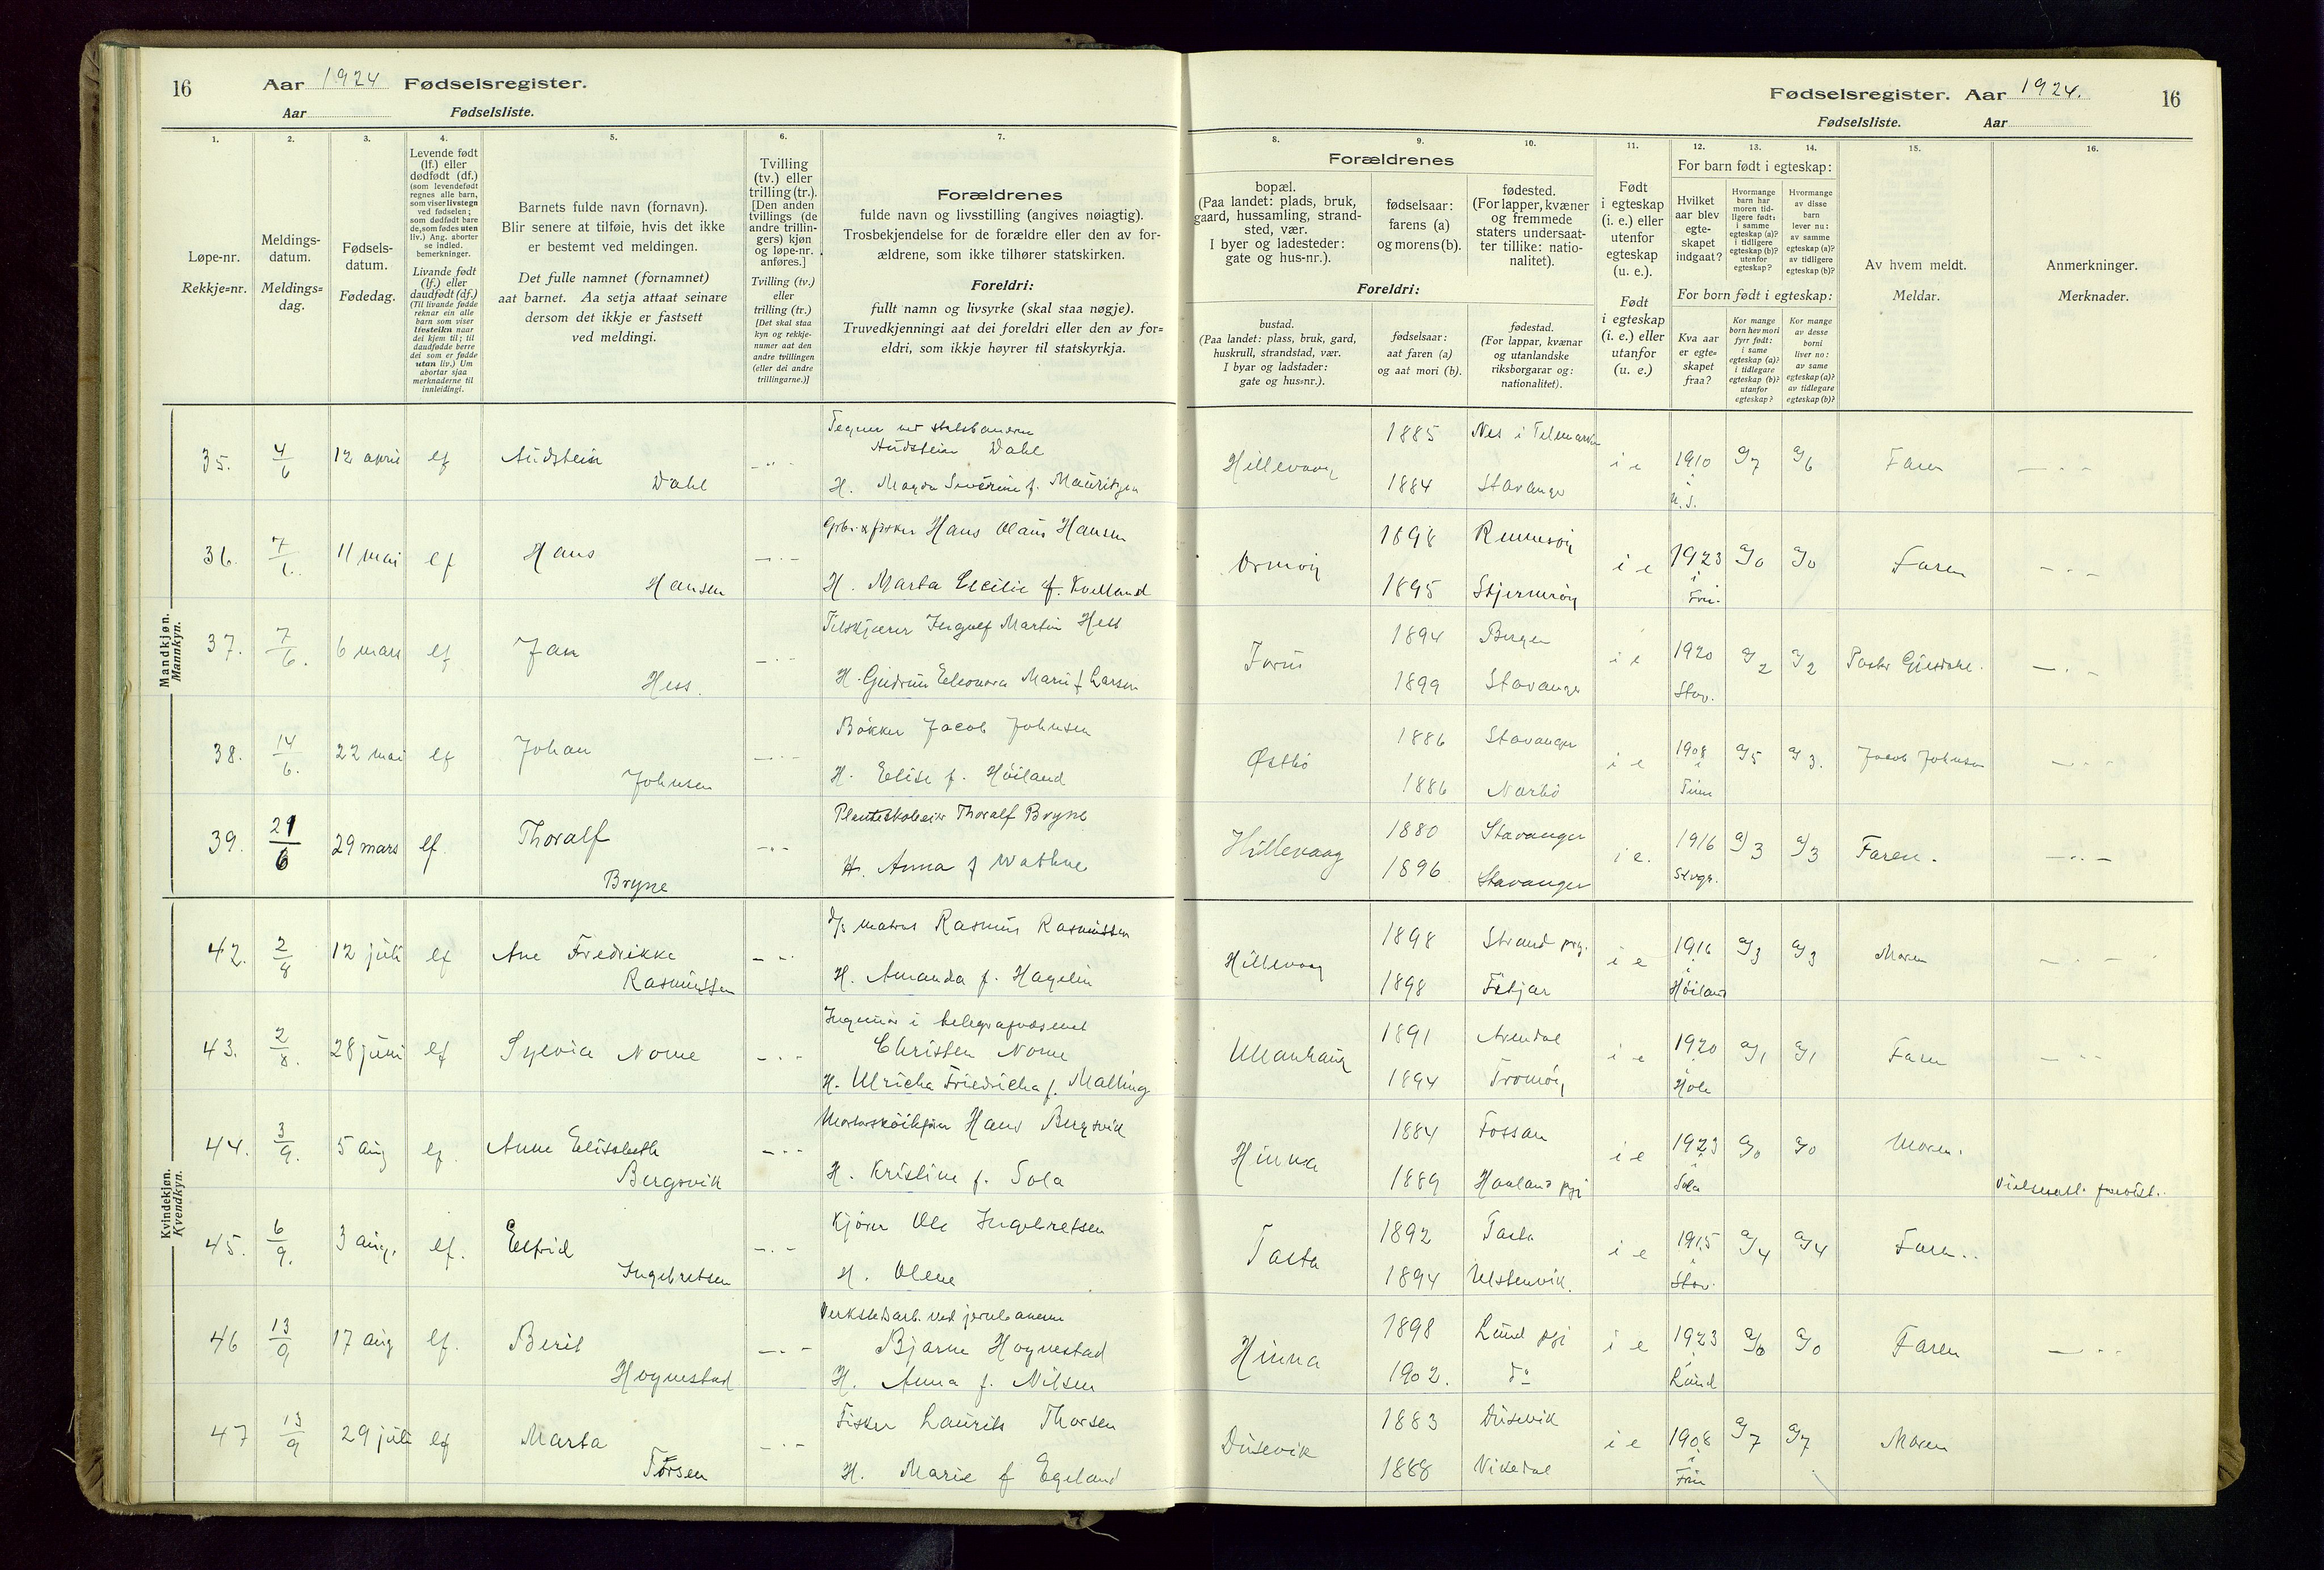 16
Aar 1924 Fødselsregister.
Aar Fødselsliste.
1.
2.
3.
4.
5.
6.
7.
Løpe-nr.
Rekkje=nr.
Meldings-
datum.
Meldings=
dag.
Fødsels-
datum.
Fødedag.
Levende født
(lf.) eller
dødfødt (df.)
(som levendefødt
regnes alle barn,
som viser livstegn
ved fødselen;
som dødfødt bare
de, som fødes uten
liv.) Ang. aborter
se indled.
bemerkninger.
Livande født
(lf.) eller
daudfødt (df.)
(Til livande fødde
reknar ein alle
barn som viser
livsteikn naar
dei kjem til; til
daudfødde berre
dei som er fødde
utan liv.) Um
abortar sjaa
merknaderne til
innleidingi.
Barnets fulde navn (fornavn).
Blir senere at tilføie, hvis det ikke
er bestemt ved meldingen.
Det fulle namnet (fornamnet)
aat barnet. Aa setja attaat seinare
dersom det ikkje er fastsett
ved meldingi.
Tvilling
(tv.) eller
trilling (tr.).
[Den anden
tvillings (de
andre trillin-
gers) kjøn
og løpe-nr.
anføres.]
Tvilling (tv.)
eller
trilling (tr.)
[Det skal staa
kyn og rekkje-
numer aat den
andre tvillingen
(eller dei andre
trillingarne.)]
Forældrenes
fulde navn og livsstilling (angives nøiagtig).
Trosbekjendelse for de forældre eller den av for-
ældrene, som ikke tilhører statskirken.
Foreldri:
fullt namn og livsyrke (skal staa nøgje).
Truvedkjenningi aat dei foreldri eller den av for=
eldri, som ikkje høyrer til statskyrkja.
Mandkjøn.
Mannkyn.
35. 4/6 12 april lf Audstein
Dahl
Audstein Dahl
H. Magda Severine f. Mauritzen
36. 7/6. 11 mai lf Hans
Hansen
Hans Olaus Hansen
H. Marta Cecilie f. Kvelland
37. 7/6. 6 mars lf Jan
Hess.
Ingolf Martin Hess
H. Gudrun Eleonora Marie f Larsen
38. 14/6. 22 mai lf Johan
Johnsen
Bøkker Jacob Johnsen
H. Elise f. Høiland
39. 21/6 29 mars lf. Thoralf
Bryne
Thoralf Bryne
H. Anna f Wathne
Kvindekjøn.
Kvendkyn.
42. 2/8 12 juli lf Ane Fredrikke
Rasmussen
matros Rasmus Rasmussen
H. Amanda f. Hagelin
43. 2/8. 28 juni lf Sylvia Nome
Ingeniør i telegrafvæsenet
Christen Nome
H. Ulricha Friedricha f. Malling
44. 3/9. 5 aug lf. Anne Elisabeth
Bergsvik
Hans Bergsvik
H. Kristine f. Sola
45. 6/9. 3 aug. lf. Elfrid
Ingebretsen
Kjører Ole Ingebretsen
H. Olene
46 13/9 17 aug lf. Berit
Hognestad
Verkstedsarb. ved jernbanerne
Bjarne Hognestad
H. Anna f. Nilsen
47 13/9 29 juli lf Marta
Torsen
Fisker Laurits Thorsen
H. Marie f Egeland
Fødselsregister. Aar 1924.
16
Fødselsliste. Aar
8.
9.
10.
11.
12.
13.
14.
15.
16.
Forældrenes
bopæl.
(Paa landet: plads, bruk,
gaard, hussamling, strand-
sted, vær.
I byer og ladesteder:
gate og hus-nr.).
fødselsaar:
farens (a)
og morens (b).
fødested.
(For lapper, kvæner
og fremmede
staters undersaat-
ter tillike: natio-
nalitet).
Foreldri:
bustad.
(Paa landet: plass, bruk, gard,
huskrull, strandstad, vær.
I byar og ladstader:
gate og hus=nr.).
fødselsaar:
aat faren (a)
og aat mori (b).
fødestad.
(For lappar, kvænar
og utanlandske
riksborgarar og:
nationalitet).
Født
i egteskap
(i. e.) eller
utenfor
egteskap
(u. e.).
Født
i egteskap
(i. e.) eller
utanfor
(u. e.)
For barn født i egteskap:
Hvilket
aar blev
egte-
skapet
indgaat?
Hvormange
barn har
moren tid-
ligere født:
i samme
egteskap (a)?
i tidligere
egteskap (b)?
utenfor
egteskap?
Hvormange
av disse
barn
lever nu:
av samme
egteskap (a)?
av tidligere
egteskap (b)?
For born født i egteskap:
Kva aar
er egte=
skapet
fraa?
Kor mange
born hev mori
fyrr født:
i same
egteskap (a)?
i tidlegare
egteskap (b)?
utanfor
egteskap?
Kor mange
av desse
borni
liver no:
av same
egteskap (a)?
av tidlegare
egteskap (b)?
Av hvem meldt.
Meldar.
Anmerkninger.
Merknader.
Hillevaag 1885 Nes i Telemarken
1884 Stavanger
i e 1910 a/7 a/6 Faren
Ormøy 1898 Rennesøy
1895 Stjernerøy
i e 1923 a/0 a/0 Faren
Forus 1894 Bergen
1899 Stavanger
i e 1920 Stav. a/2 a/2 Pastor Gjesdahl.
Østbø 1886 Stavanger
1886 Nærbø
i e 1908 i Time a/5 a/3. Jacob Johnsen
Hillevaag 1880 Stavanger
1896 Stavanger
i e. 1916 Stvgr. a/3 a/3 Faren.
Hillevaag 1898 Strand prg.
1898 Fitjar
i e 1916 i Høiland a/3 a/3 Moren
Ullanhaug 1891 Arendal
1894 Tromøy
i e 1920 i Hole a/1 a/1 Faren
Hinna 1884 Fossan
1889 Haaland pgj
i e 1923 i Sola a/0 a/0 Moren.
Tasta 1892 Tasta
1894 Ulstenvik.
i e 1915 Stav. a/4 a/4 Faren.
Hinna 1898 Lund pgj
1902. do
i e 1923 i Lund a/0 a/0 Faren
Dusevik 1883 Dusevik
1888 Vikedal
i e 1908 i Frue a/7 a/7 Moren